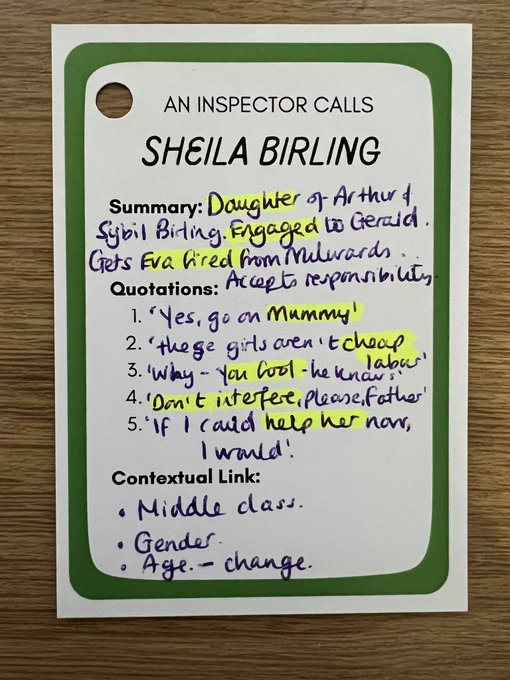 AN INSPECTOR CALLS
SHEILA BIRLING
Summary: Daughter of Arthur &
Sybil Birling. Engaged to Gerald.
Gets Eva fired from Milwards.
Accepts responsibility
Quotations:
1. 'Yes, go on Mummy'
2. 'these girls aren't cheap
labour'
3. 'Why - you fool - he knows'
4. 'Don't interfere, please, Father'
5. 'If I could help her now,
I would'.
Contextual Link:
• Middle class.
• Gender.
• Age. - change.